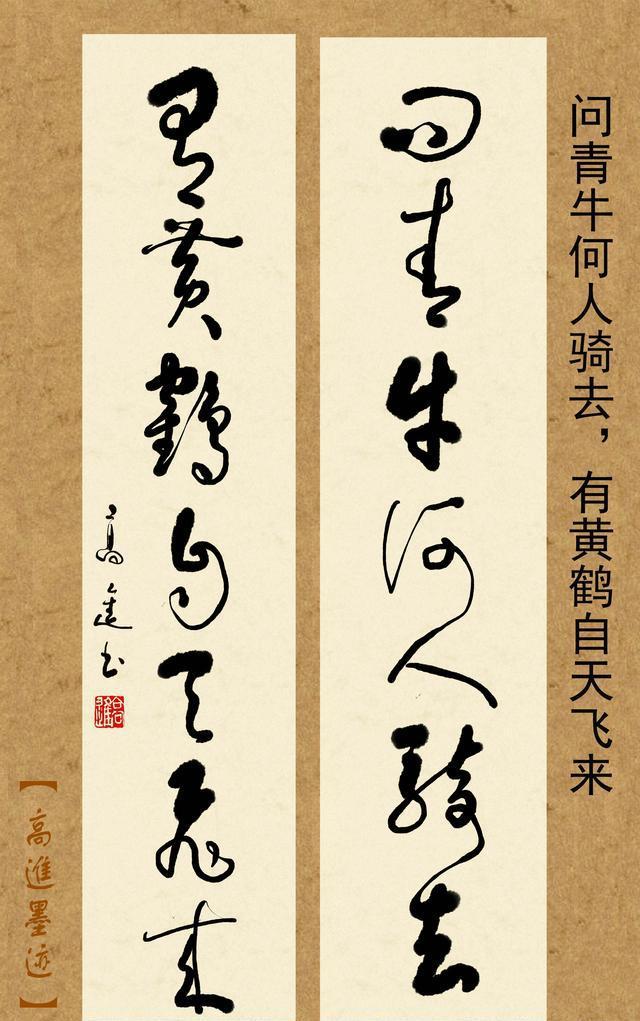 问青牛何人骑去，有黄鹤自天飞来
问青牛何人騎去
有黄鶴自天飛来
高進书
【高進墨迹】